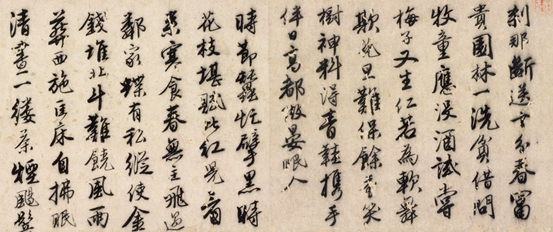 刹那斷送十分春富
貴園林一洗貧借問
牧童應沒酒試嘗
梅子又生仁若為軟舞
欺花旦難保餘香笑
樹神料得青鞋携手
伴日高都做晏眠人
時節蠶忙擘黑時
花枝堪賦比紅兒看
來寒食春無主飛過
鄰家蝶有私縱使金
錢堆北斗難饒風雨
葬西施匡床自拂眠
清晝一縷茶煙颺鬢